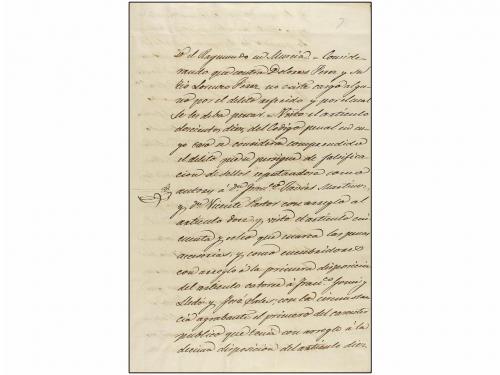 7
to el Raymundo en Murcia = Conside-
rando que contra Dolores Perez y Ju-
Lorenzo Perez no existe cargo algu-
no por el delito referido y por el cual
se les deba penar = Visto el articulo
doscientos diez del Codigo penal en cu-
yo caso se considera comprendido
el delito que se persigue de falsifi-
cacion de sellos reputandose como
autores á Dn Franco Martinez
y Dn Vicente Pastor con arreglo al
articulo doce y visto el articulo cin-
cuenta y ocho que marca las penas
accesorias, y como encubridores
con arreglo á la primera disposicion
del articulo catorce á Franco
y Jose Soler, con la circunstan-
cia agrabante el primero del caracter
publico que tenia con arreglo á la
decima disposicion del articulo diez